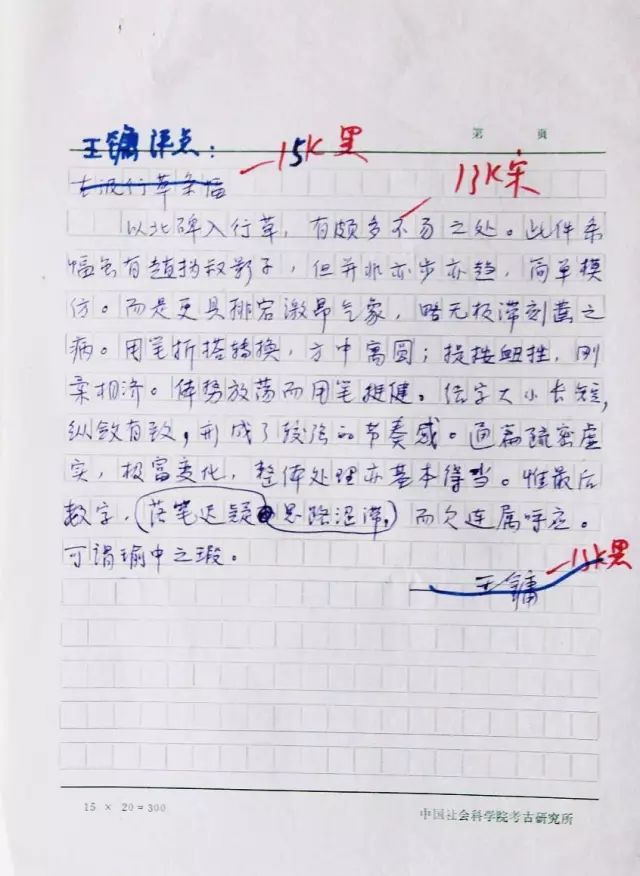 第 页
王镛评点:
15K黑
13K宋
以北碑入行草,有颇多不易之处。此件条
幅虽有赵㧑叔影子,但并非亦步亦趋,简单模
仿。而是更具排宕激昂气象,略无板滞刻薄之
病。用笔折搭转换,方中寓圆;提按钮挫,刚
柔相济。体势放荡而用笔挺健。结字大小长短,
纵敛有致,形成了较强的节奏感。通篇疏密虚
实,极富变化,整体处理亦基本得当。惟最后
数字,落笔迟疑 思路涩滞,而欠连属呼应。
可谓瑜中之瑕。
13K黑
王镛
15 × 20 = 300
中国社会科学院考古研究所